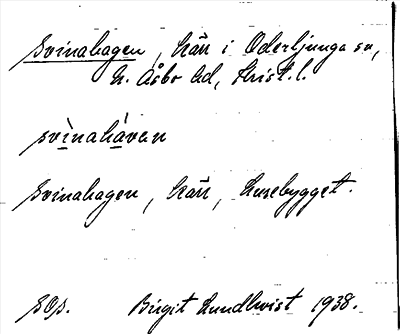 Svinahagen, kärr i Oderljunga sn,
N. Åsbo hd, Krist. l.
svìnahàven
Svinahagen, kärr, Husebygget.
sOp. Birgit Lundkvist 1938.